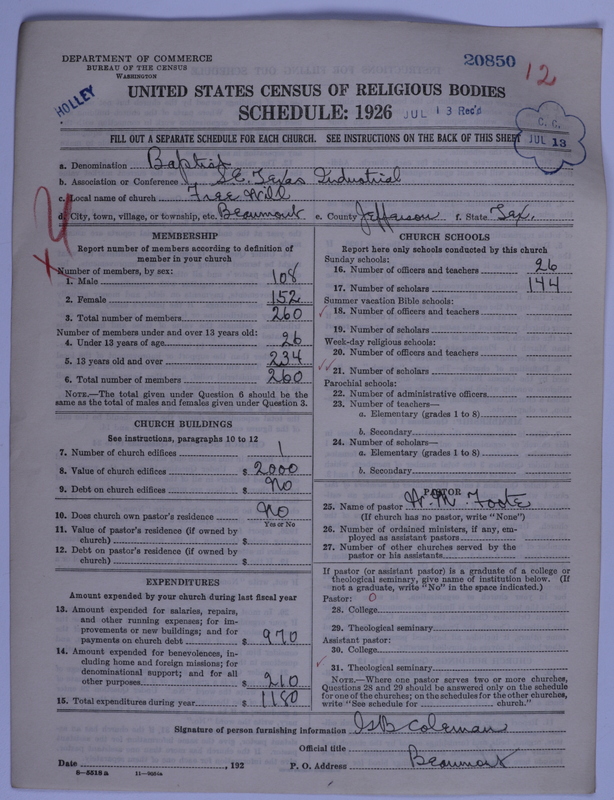 DEPARTMENT OF COMMERCE
BUREAU OF THE CENSUS
WASHINGTON
20850
12
HOLLEY
UNITED STATES CENSUS OF RELIGIOUS BODIES
SCHEDULE: 1926 JUL 13 Rec'd
C. C.
JUL 13
FILL OUT A SEPARATE SCHEDULE FOR EACH CHURCH. SEE INSTRUCTIONS ON THE BACK OF THIS SHEET
a. Denomination Baptist
b. Association or Conference S.E. Texas Industrial
c. Local name of church Free Will
d. City, town, village, or township, etc. Beaumont e. County Jefferson f. State Tex.
MEMBERSHIP
Report number of members according to definition of
member in your church
Number of members, by sex:
1. Male 108
2. Female 152
3. Total number of members 260
Number of members under and over 13 years old:
4. Under 13 years of age 26
5. 13 years old and over 234
6. Total number of members 260
NOTE.—The total given under Question 6 should be the
same as the total of males and females given under Question 3.
CHURCH BUILDINGS
See instructions, paragraphs 10 to 12
7. Number of church edifices 1
8. Value of church edifices $ 2000
9. Debt on church edifices $ No
10. Does church own pastor's residence No
Yes or No
11. Value of pastor's residence (if owned by
church) $
12. Debt on pastor's residence (if owned by
church) $
EXPENDITURES
Amount expended by your church during last fiscal year
13. Amount expended for salaries, repairs,
and other running expenses; for im-
provements or new buildings; and for
payments on church debt $ 970
14. Amount expended for benevolences, in-
cluding home and foreign missions; for
denominational support; and for all
other purposes $ 210
15. Total expenditures during year $ 1180
CHURCH SCHOOLS
Report here only schools conducted by this church
Sunday schools:
16. Number of officers and teachers 26
17. Number of scholars 144
Summer vacation Bible schools:
18. Number of officers and teachers
19. Number of scholars
Week-day religious schools:
20. Number of officers and teachers
21. Number of scholars
Parochial schools:
22. Number of administrative officers
23. Number of teachers—
a. Elementary (grades 1 to 8)
b. Secondary
24. Number of scholars—
a. Elementary (grades 1 to 8)
b. Secondary
PASTOR
25. Name of pastor W. M. Foote
(If church has no pastor, write "None")
26. Number of ordained ministers, if any, em-
ployed as assistant pastors
27. Number of other churches served by the
pastor or his assistants
If pastor (or assistant pastor) is a graduate of a college or
theological seminary, give name of institution below. (If
not a graduate, write "No" in the space indicated.)
Pastor: 0
28. College
29. Theological seminary
Assistant pastor:
30. College
31. Theological seminary
NOTE.—Where one pastor serves two or more churches,
Questions 28 and 29 should be answered only on the schedule
for one of the churches; on the schedules for the other churches,
write "See schedule for church."
Signature of person furnishing information Coleman
Official title
Date , 192 P. O. Address Beaumont
8—5518 a